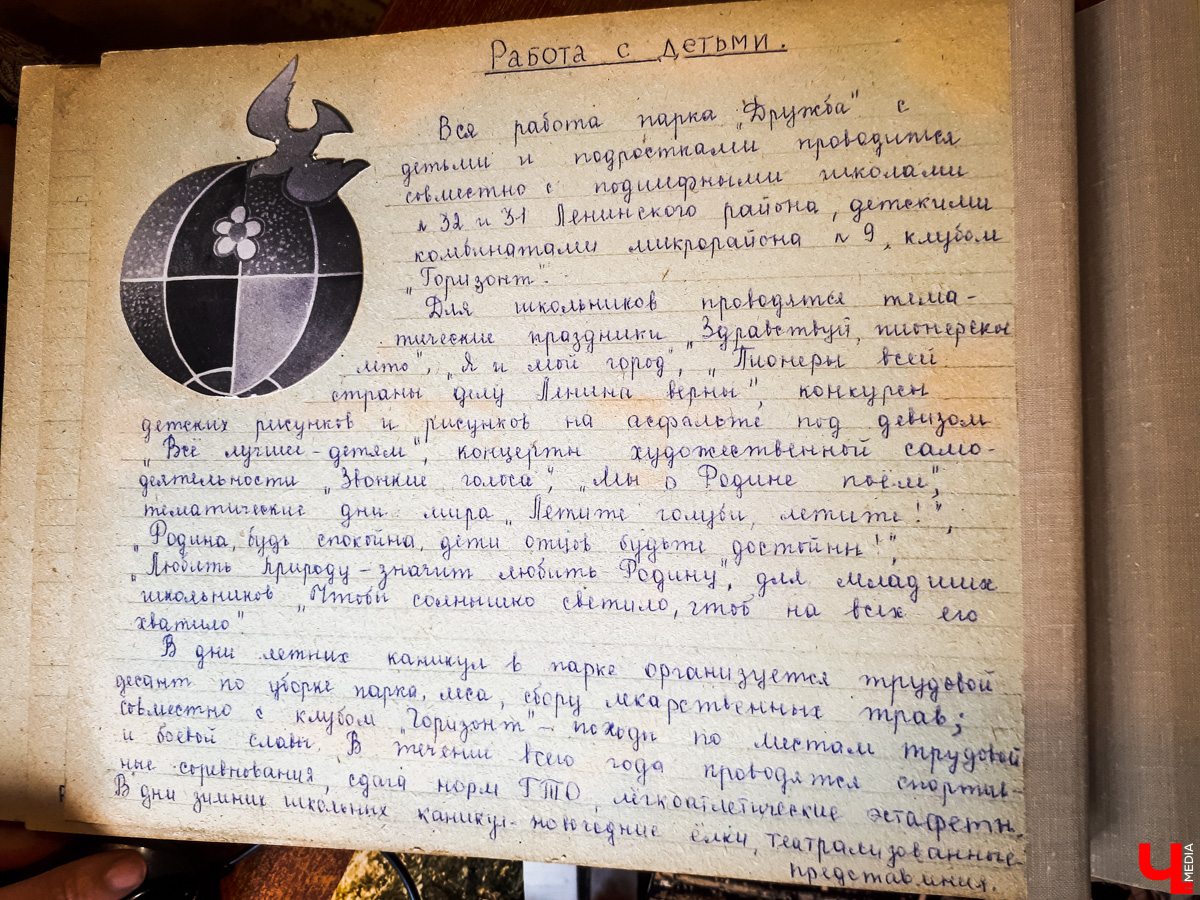 Работа с детьми.
Вся работа парка „Дружба" с
детьми и подростками проводится
совместно с подшефными школами
№ 32 и 31 Ленинского района, детскими
комбинатами микрорайона № 9, клубом
„Горизонт".
Для школьников проводятся тема-
тические праздники „Здравствуй, пионерское
лето", „Я и мой город", „Пионеры всей
страны делу Ленина верны", конкурсы
детских рисунков и рисунков на асфальте под девизом
„Всё лучшее - детям", концерты художественной само-
деятельности „Звонкие голоса", „Мы о Родине поём",
тематические дни мира „Летите голуби, летите!",
„Родина, будь спокойна, дети отцов будьте достойны!",
„Любить природу - значит любить Родину", для младших
школьников „Чтобы солнышко светило, чтоб на всех его
хватило"
В дни летних каникул в парке организуется трудовой
десант по уборке парка, леса, сбору лекарственных трав;
совместно с клубом „Горизонт" - походы по местам трудовой
и боевой славы. В течении всего года проводятся спортив-
ные соревнования, сдача норм ГТО, легкоатлетические эстафеты.
В дни зимних школьных каникул - новогодние ёлки, театрализованные
представления.
Ч MEDIA